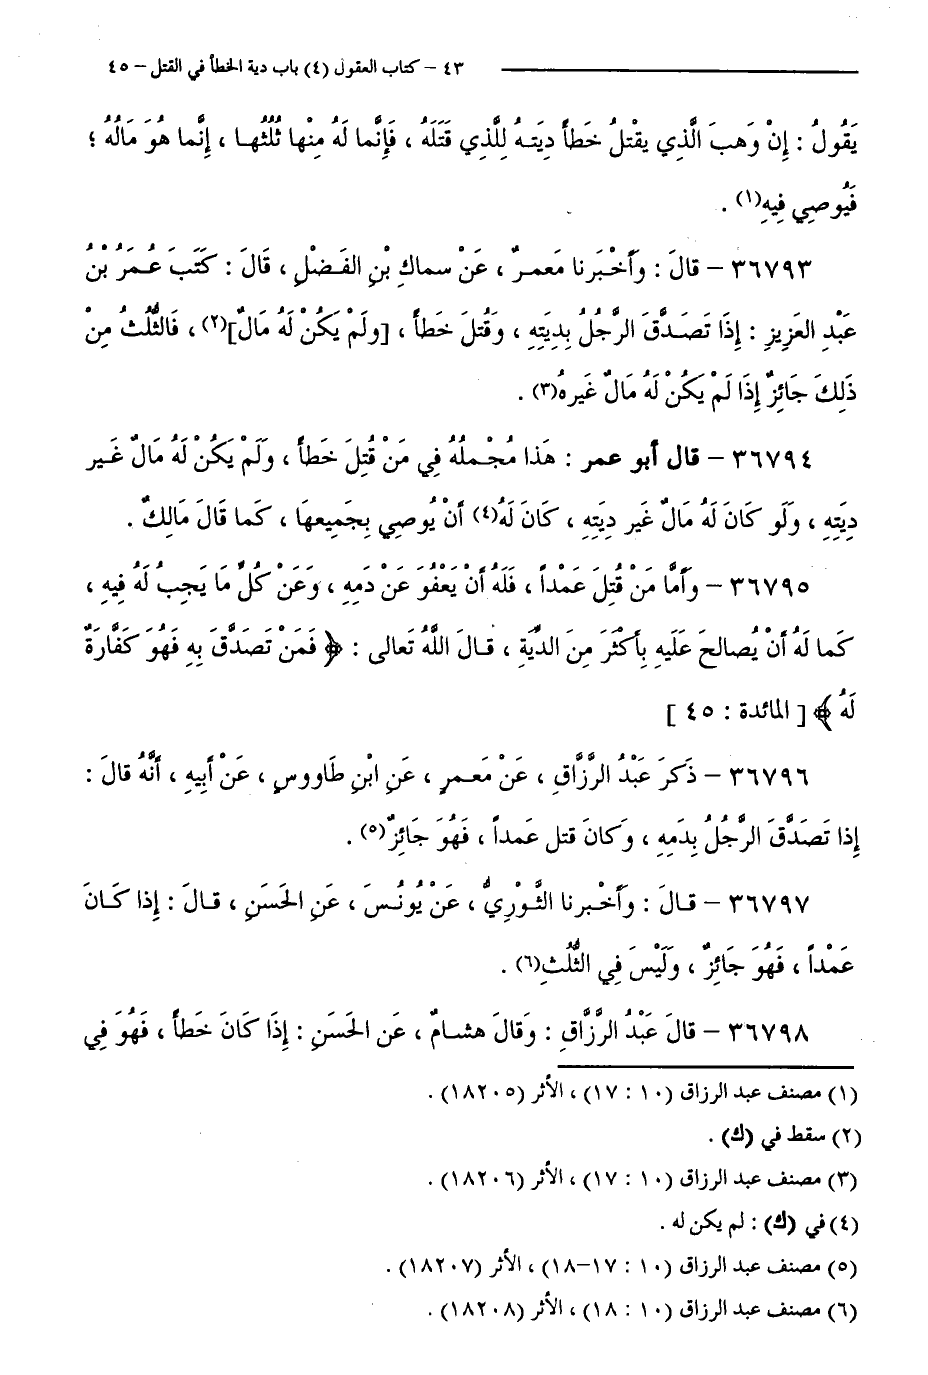 ٤٣ – كتاب العقول (٤) باب دية الخطأ في القتل – ٤٥
يَقُولُ : إِنْ وَهبَ الَّذِي يقْتلُ خَطأً ديَتهُ لِلَّذِي قَتَلَهُ ، فَإِنَّما لَهُ مِنْها ثُلُثُها ، إِنَّما هُوَ مَالُهُ ؛
فَيُوصِي فِيهِ(١) .
٣٦٧٩٣ – قالَ : وَأَخْبَرنا مَعمرٌ ، عَنْ سماك بْنِ الفَضْلِ ، قَالَ : كَتَبَ عُمَرُ بْنُ
عَبْدِ العَزِيزِ : إِذَا تَصَدَّقَ الرَّجُلُ بِدِيَتِهِ ، وَقُتلَ خَطأً ، [ولَمْ يَكُنْ لَهُ مَالٌ](٢) ، فَالثُّلُثُ مِنْ
ذَلِكَ جَائِزٌ إِذَا لَمْ يَكُنْ لَهُ مَالٌ غَيرهُ(٣) .
٣٦٧٩٤ – قال أبو عمر : هَذا مُجْملُهُ فِي مَنْ قُتِلَ خَطأً ، ولَمْ يَكُنْ لَهُ مَالٌ غَير
ديَتِهِ ، ولَو كَانَ لَهُ مَالٌ غَير ديَتِهِ ، كَانَ لَهُ(٤) أَنْ يُوصِي بِجَمِيعهَا ، كَما قَالَ مَالِكٌ .
٣٦٧٩٥ – وَأَمَّا مَنْ قُتِلَ عَمْداً ، فَلَهُ أَنْ يَعْفُوَ عَنْ دَمِهِ ، وَعَنْ كُلِّ مَا يَجِبُ لَهُ فِيهِ ،
كَما لَهُ أَنْ يُصالحَ عَلَيهِ بِأَكْثَرَ مِنَ الدِّيَةِ ، قـالَ اللَّهُ تَعالى : ﴿ فَمَنْ تَصَدَّقَ بِهِ فَهُوَ كَفَّارَةٌ
لَهُ ﴾ [ المائدة : ٤٥ ]
٣٦٧٩٦ – ذَكَرَ عَبْدُ الرَّزَّاقِ ، عَنْ مَعمرٍ ، عَنِ ابْنِ طَاووسٍ ، عَنْ أَبِيهِ ، أَنَّهُ قالَ :
إِذا تَصَدَّقَ الرَّجُلُ بِدَمِهِ ، وَكانَ قتل عَمداً ، فَهُوَ جَائِزٌ(٥) .
٣٦٧٩٧ – قـالَ : وَأَخْبرنا الثَّوْرِيُّ ، عَنْ يُونُسَ ، عَنِ الحَسَنِ ، قـالَ : إِذا كَـانَ
عَمْداً ، فَهُوَ جَائِزٌ ، وَلَيْسَ فِي الثُّلُثِ(٦) .
٣٦٧٩٨ – قالَ عَبْدُ الرَّزَّاقِ : وَقالَ هشـامٌ ، عَنِ الحَسَنِ : إِذَا كَانَ خَطأً ، فَهُوَ فِي
(١) مصنف عبد الرزاق (١٠ : ١٧) ، الأثر (١٨٢٠٥) .
(٢) سقط في (ك) .
(٣) مصنف عبد الرزاق (١٠ : ١٧) ، الأثر (١٨٢٠٦) .
(٤) في (ك) : لم يكن له .
(٥) مصنف عبد الرزاق (١٠ : ١٧–١٨) ، الأثر (١٨٢٠٧) .
(٦) مصنف عبد الرزاق (١٠ : ١٨) ، الأثر (١٨٢٠٨) .